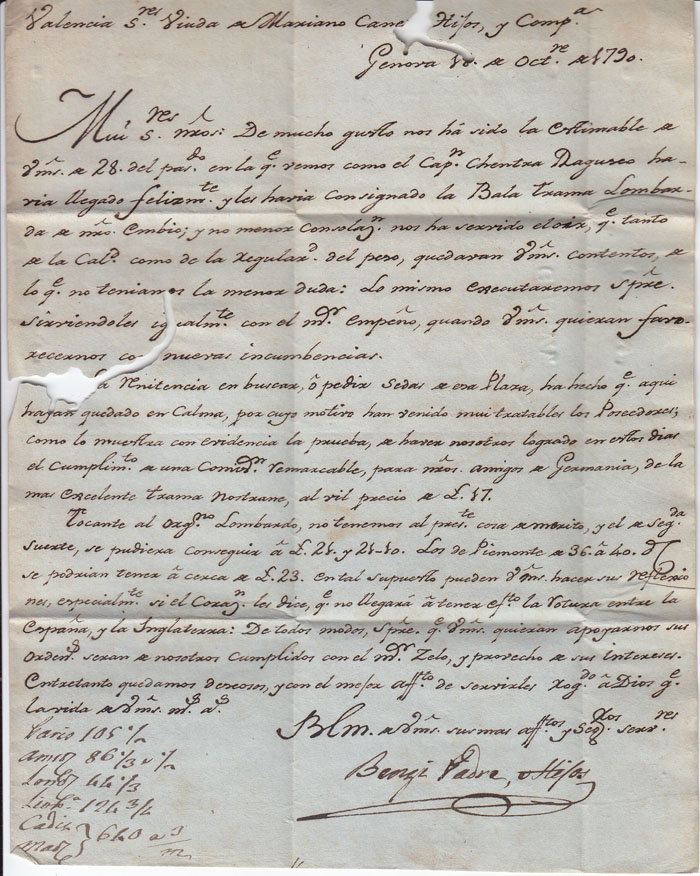 Valencia S.res Viuda de Mariano Cane Hijos, y Comp.a
Genova 18. de Oct.re de 1790.
Mui S.res nros: De mucho gusto nos há sido la estimable de
Vms. de 28. del pas.do en la q.e vemos como el Cap.n Chentra Raguseo ha-
via llegado felizm.te y les havia consignado la Bala trama Lombar-
da de nro. Embio; y no menor Consolaz.n nos ha servido el oir, q.e tanto
de la Cal.d como de la regular.d del peso, quedaran Vms. contentos, de
lo q.e no teniamos la menor duda: Lo mismo executaremos Spre.
sirviendoles igualm.te con el m.or Empeño, quando Vms. quieran favo-
recernos co nuevas incumbencias.
a renitencia en buscar, ô pedir Sedas de esa Plaza, ha hecho q.e aqui
hayan quedado en Calma, por cuyo motivo han venido mui tratables los Poseedores;
como lo muestra con evidencia la prueba, de haver nosotros logrado en estos dias
el Cumplim.to de una Comis.n remarcable, para nros. amigos de Germania, de la
mas excelente trama nostrane, al vil precio de £. 17.
Tocante al Org.no Lombardo, no tenemos al pres.te cosa de merito, y el de Seg.da
Suerte, se pudiera conseguir â £. 21. y 21-10. Los de Piemonte de 36. â 40. d
se podrian tener â cerca de £. 23. en tal supuesto pueden Vms. hacer sus reflexio
nes, especialm.te si el Coraz.n les dice, q.e no llegará â tener ef.to la rotura entre la
España, y la Inglaterra: De todos modos, Spre. q.e Vms. quieran apoyarnos sus
Orden.s seran de nosotros Cumplidos con el m.or Zelo, y provecho de sus intereses.
Entretanto quedamos deseosos, y con el mejor aff.to de servirles rog.do â Dios q.e
la vida de Vms. m.s a.s
BLm. de Vms. sus mas aff.tos y Seg.os serv.res
Bengi Padre, e Hijos
Paris 105 1/2
Lond 44 1/3
124 3/4
Cadiz
Mad 640